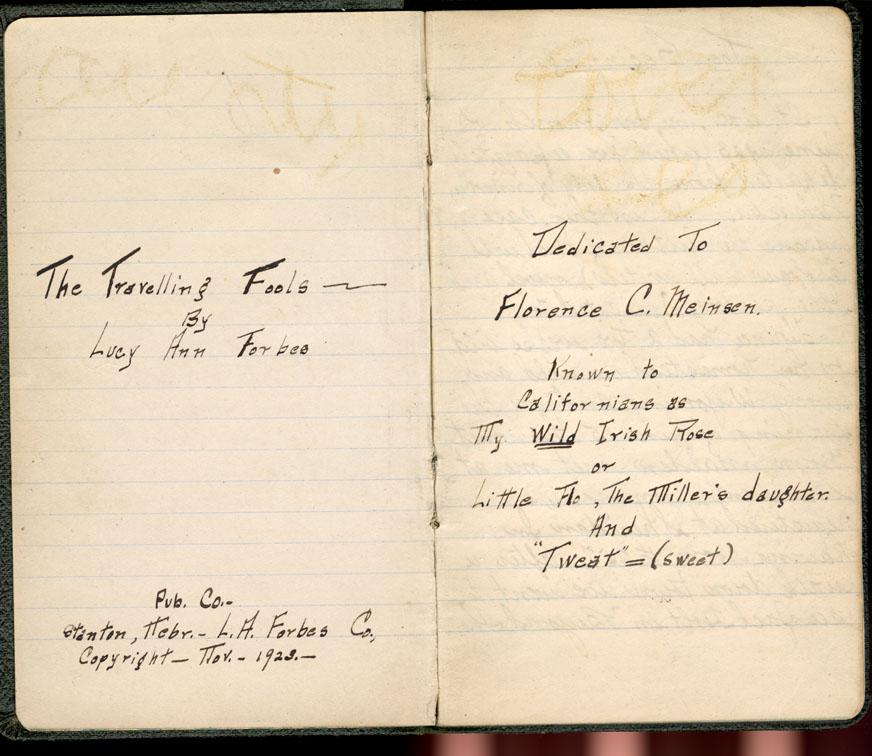 The Travelling Fools —
By
Lucy Ann Forbes
Pub. Co.-
Stanton, Nebr. - L.A. Forbes Co.,
Copyright - Nov. - 1923.-
Dedicated To
Florence C. Meinsen.
Known to
Californians as
My Wild Irish Rose
or
Little Flo, The Miller's daughter.
And
"Tweat" = (sweet)